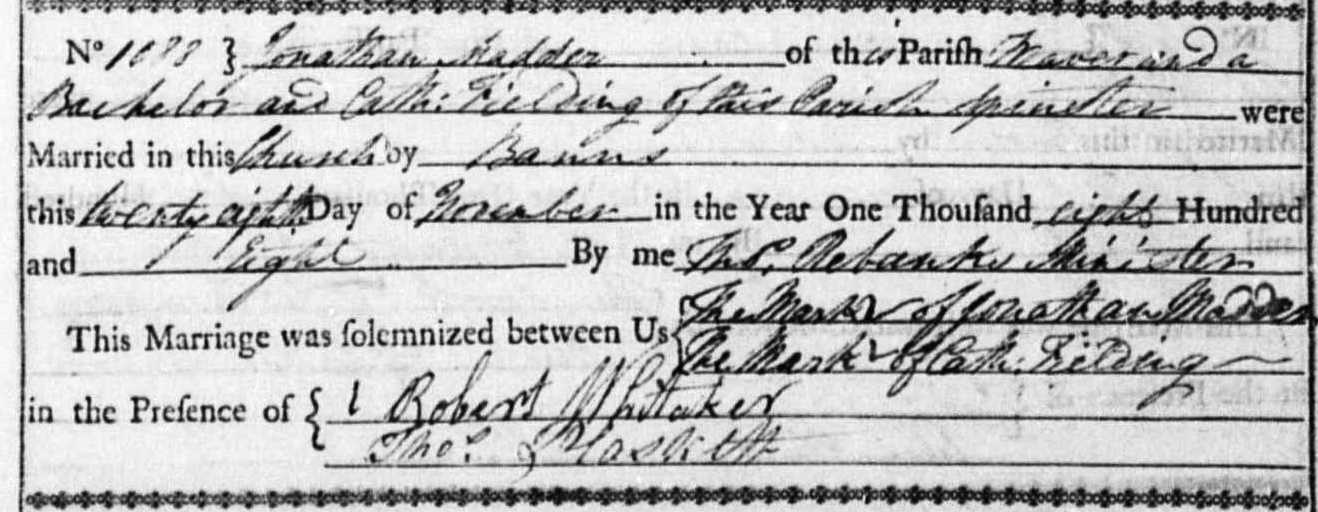 Nº 1088 } Jonathan Madder of this Pariſh Weaver and a
Bachelor and Cath: Fielding of this Parish spinster were
Married in this Church by Banns
this twenty eighth Day of November in the Year One Thouſand eight Hundred
and Eight By me Thos. Rebanks Minister
This Marriage was ſolemnized between Us { The Mark of Jonathan Madder
The Mark of Cath: Fielding
in the Preſence of { Robert Whitaker
Thos.